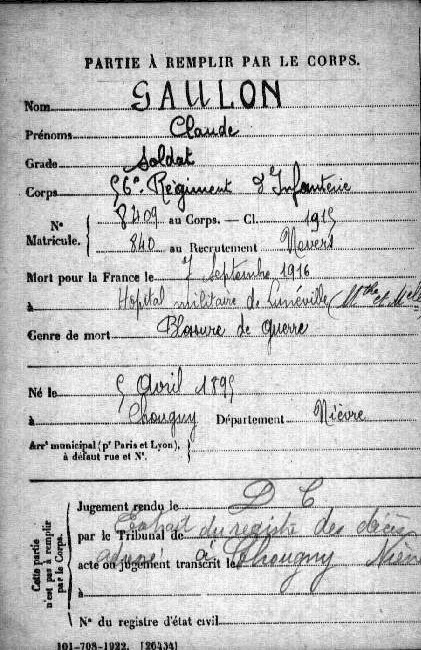 PARTIE À REMPLIR PAR LE CORPS.
Nom GAULON
Prénoms Claude
Grade Soldat
Corps 56e Régiment d'Infanterie
N° Matricule. 8409 au Corps. — Cl. 1915
840 au Recrutement Nevers
Mort pour la France le 7 Septembre 1916
à Hôpital militaire de Lunéville (Mthe et Mlle
Genre de mort Blessure de guerre
Né le 5 Avril 1895
à Chougny Département Nièvre
Arrt municipal (pr Paris et Lyon),
à défaut rue et N°.
Cette partie n'est pas à remplir par le Corps.
Jugement rendu le D C
par le Tribunal de Extrait du registre des décès
acte ou jugement transcrit le adressé à Chougny Nièvre
à
N° du registre d'état civil
101-708-1922. [26434]